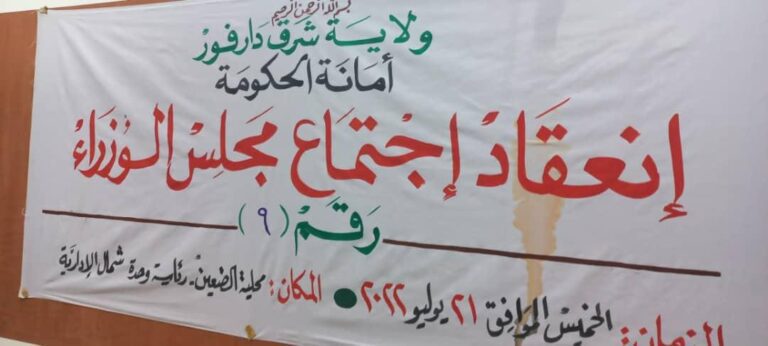 بسم الله الرحمن الرحيم
ولاية شرق دارفور
أمانة الحكومة
إنعقاد إجتماع مجلس الوزراء
رقم (٩)
الزمان: الخميس الموافق ٢١ يوليو ٢٠٢٢ ● المكان: محلية الضعين - رئاسة وحدة شمال الإدارية